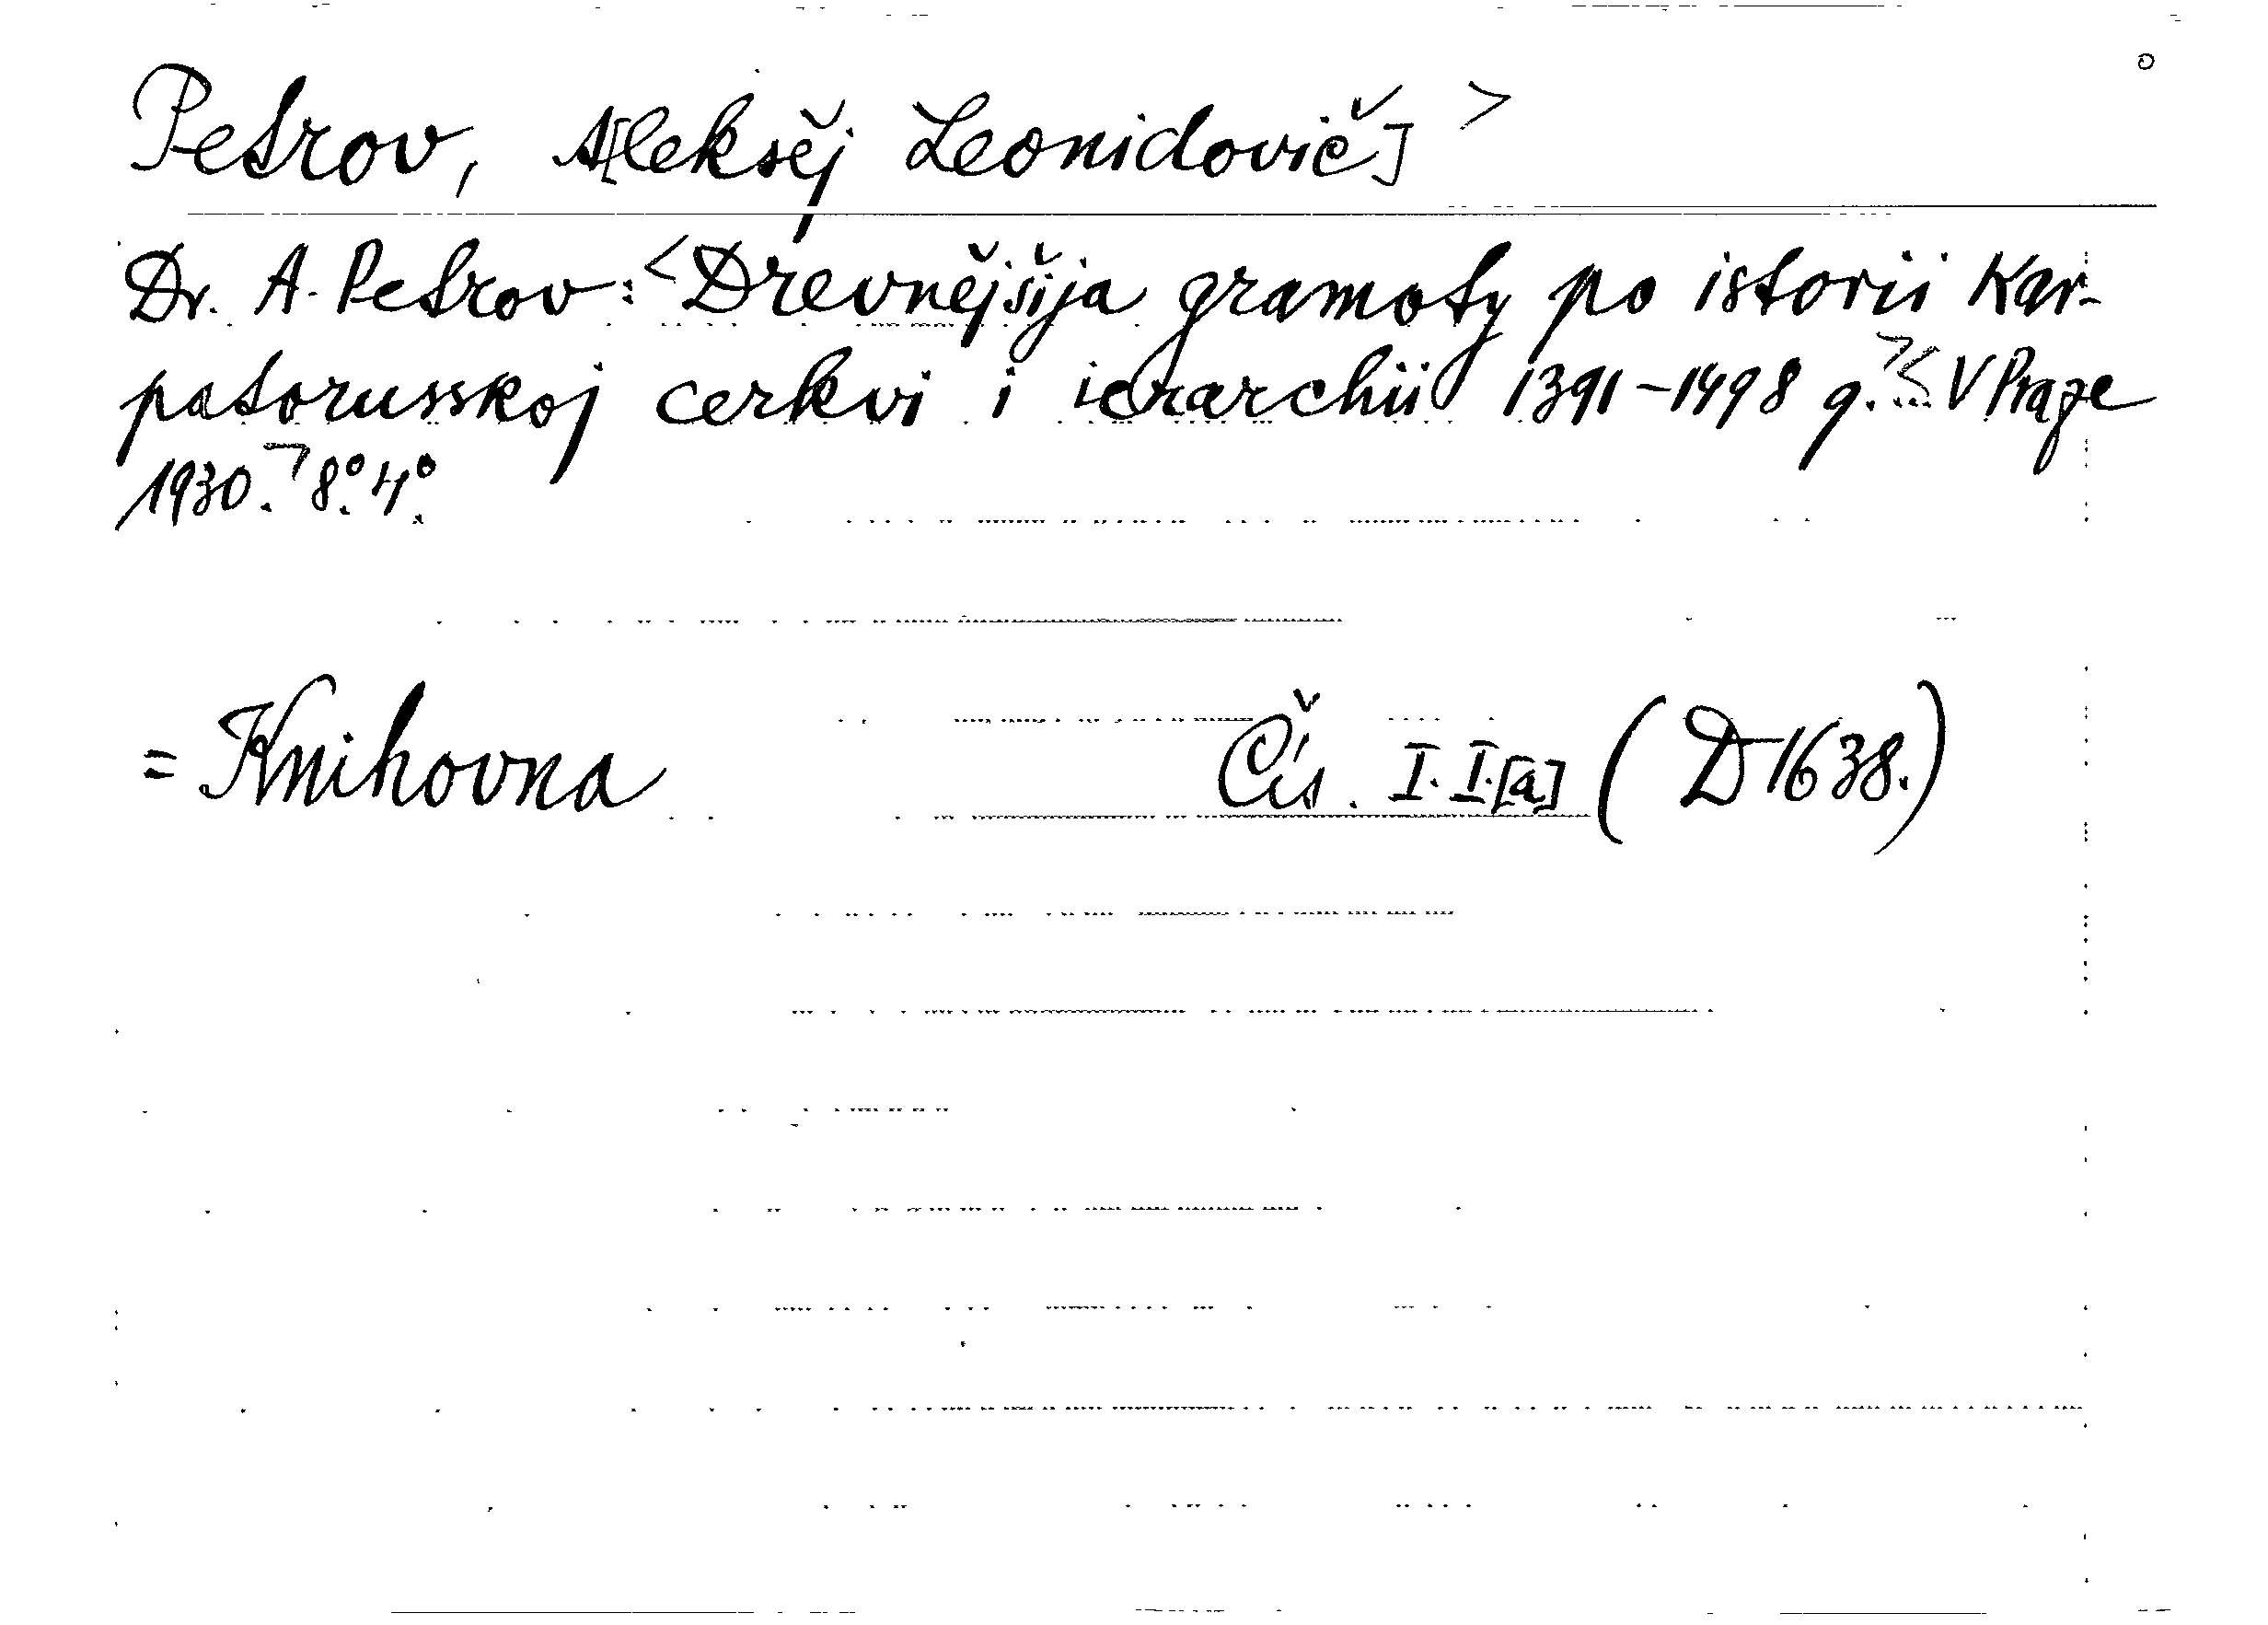 Petrov, A[leksěj Leonidovič] >
Dr. A. Petrov: <Drevnějšija gramoty po istorii Kar-
patorusskoj cerkvi i ierarchii 1391-1498 g.> < V Prage
1930.> 8°. 4°.
= Knihovna Čís. I. I.[a] (D 1638.)